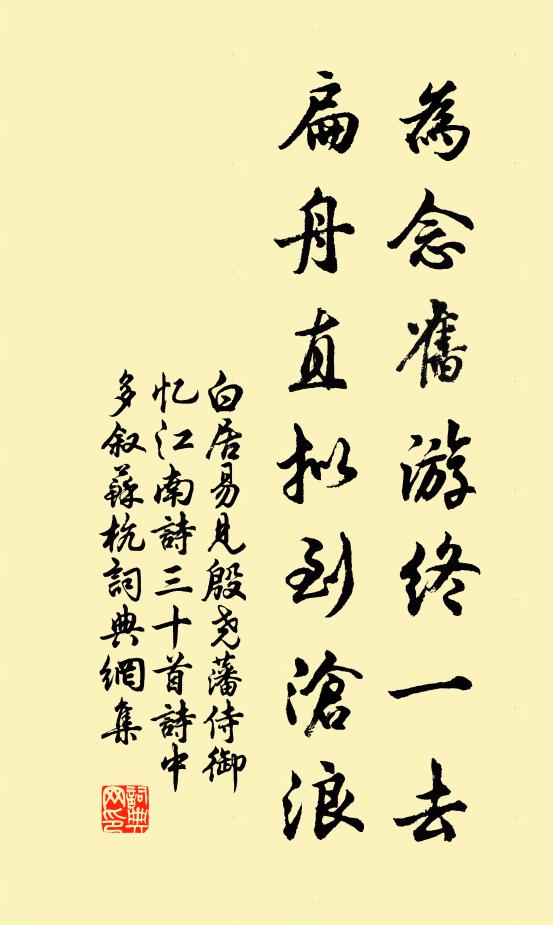 為念舊游終一去
扁舟直拟到滄浪
白居易見殷尧藩侍御
忆江南詩三十首詩中
多叙蘇杭詞典網集
詞典
网印